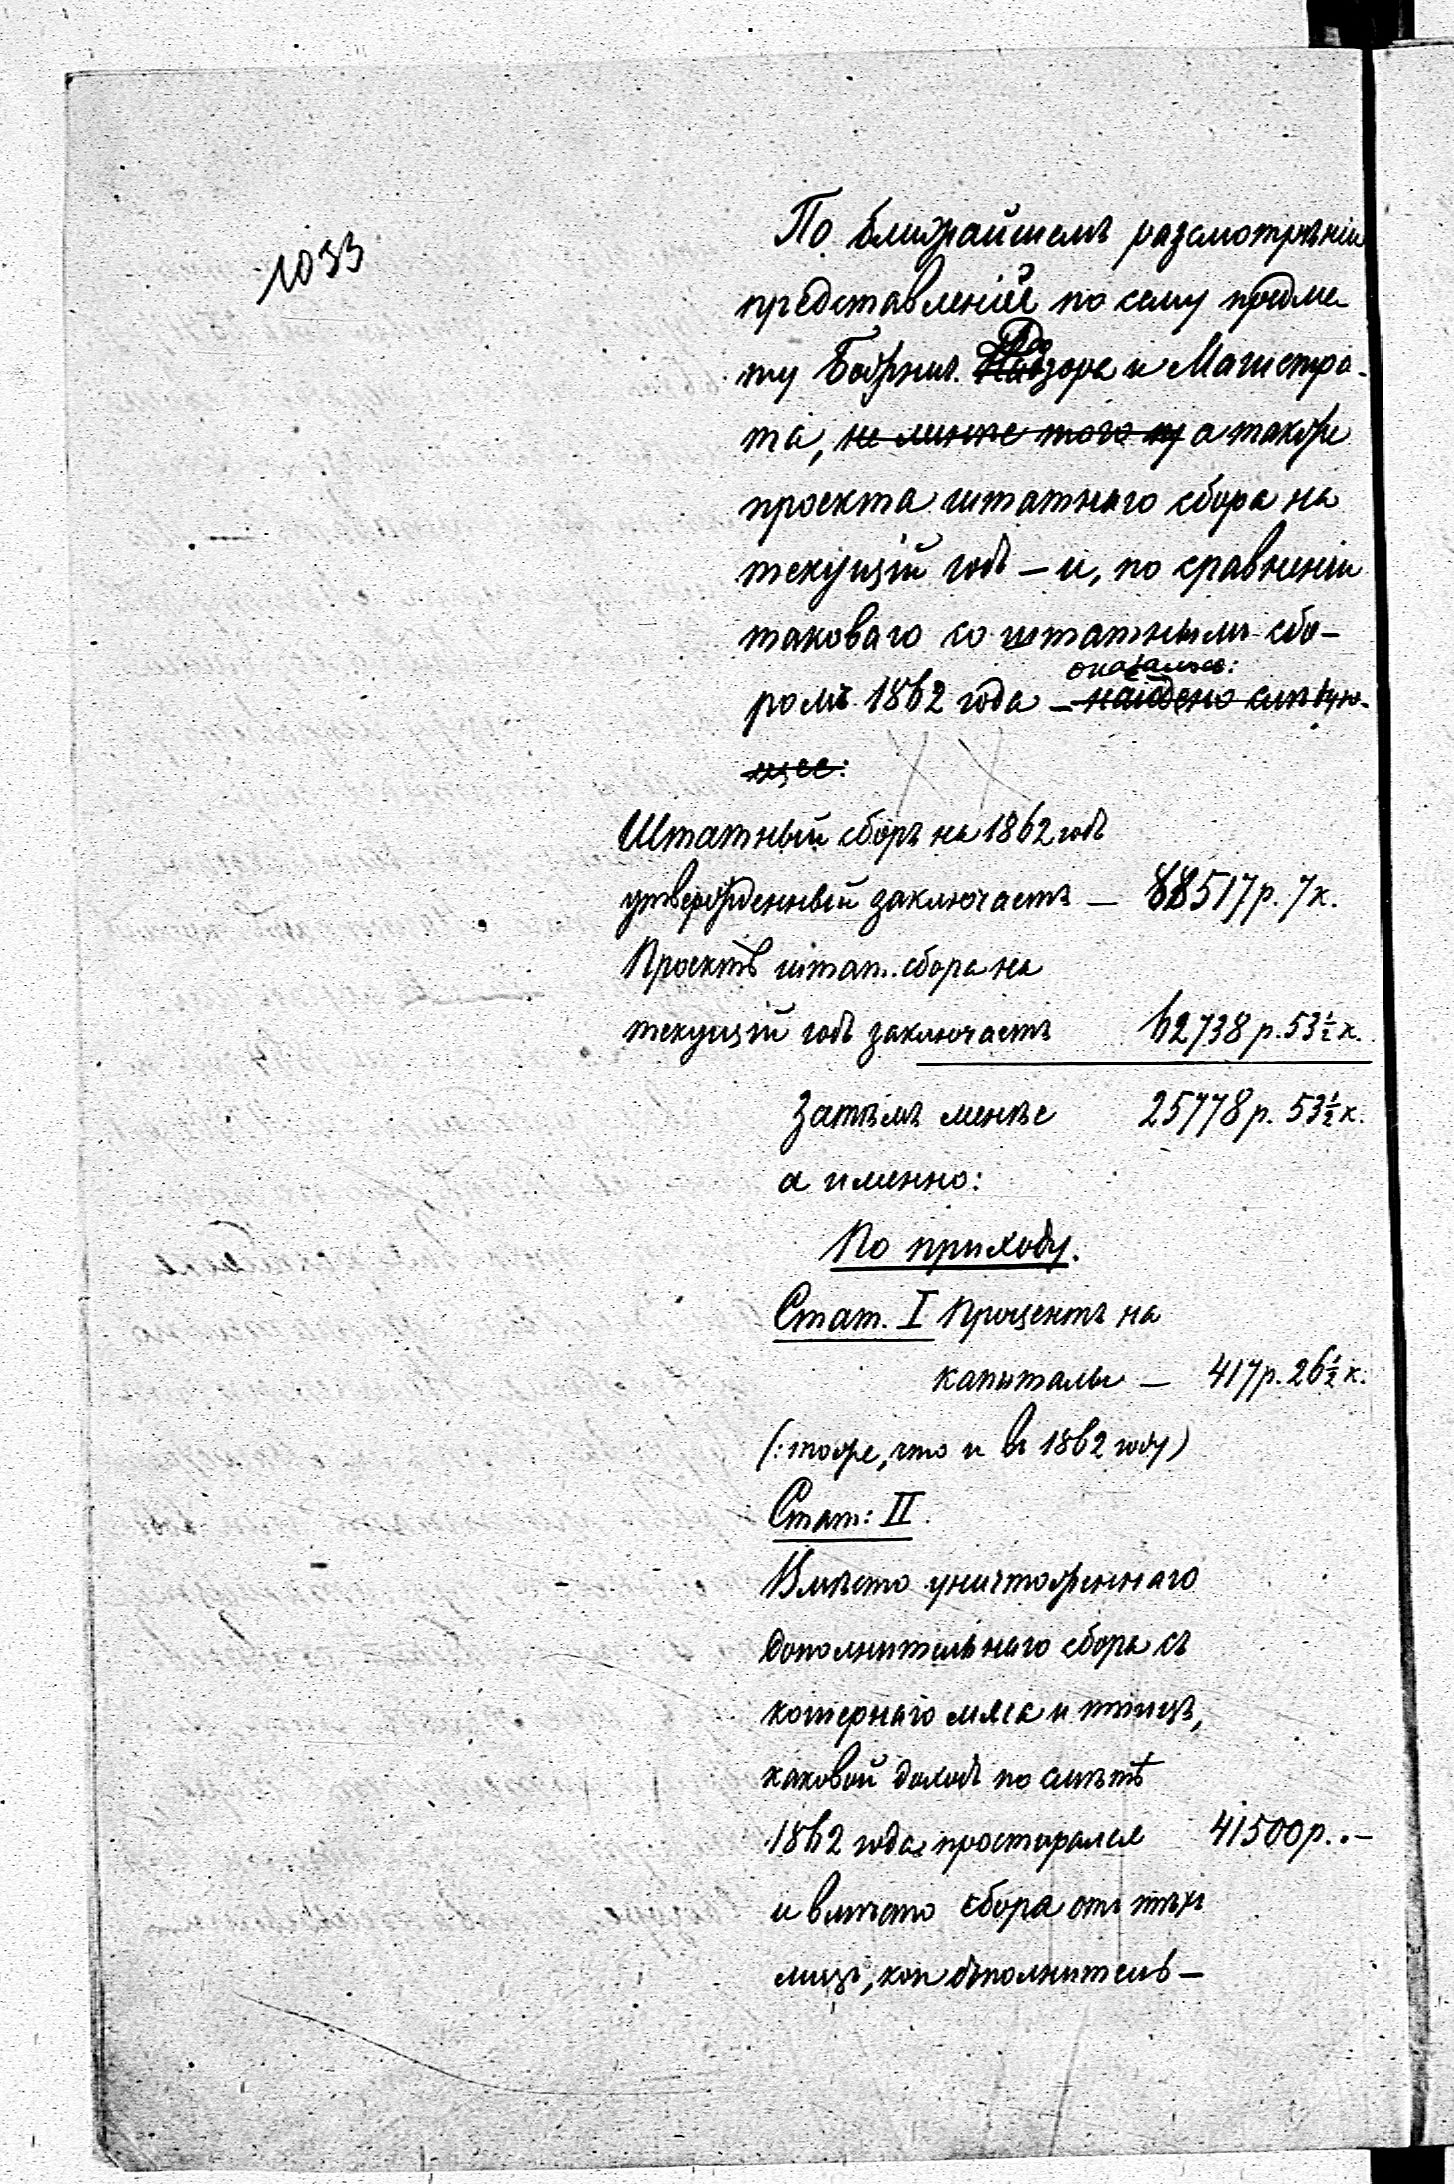 1033
По ближайшемъ разсмотрѣніи
представленій по сему предме-
ту Божнич. Дозора и Магистра-
та, не менѣе того и а также
проекта штатнаго сбора на
текущій годъ – и, по сравненіи
таковаго со штатнымъ сбо-
оказалось:
ромъ 1862 года – найдено слѣдую-
щее:
Штатный сборъ на 1862 годъ
утвержденный заключаетъ – 88517 р. 7 к.
Проектъ штат. сбора на
текущій годъ заключаетъ 62738 р. 53 ½ к.
Затѣмъ менѣе 25778 р. 53 ½ к.
а именно:
По приходу.
Стат. I Процентъ на
капиталы – 417 р. 26 ½ к.
(: тоже, что и въ 1862 году)
Стат: II.
Вмѣсто уничтоженнаго
дополнительнаго сбора съ
кошернаго мяса и птицъ,
каковой доходъ по смѣтѣ
1862 года простирался 41500 р. . –
и вмѣсто сбора отъ тѣхъ
лицъ, кои дополнитель–